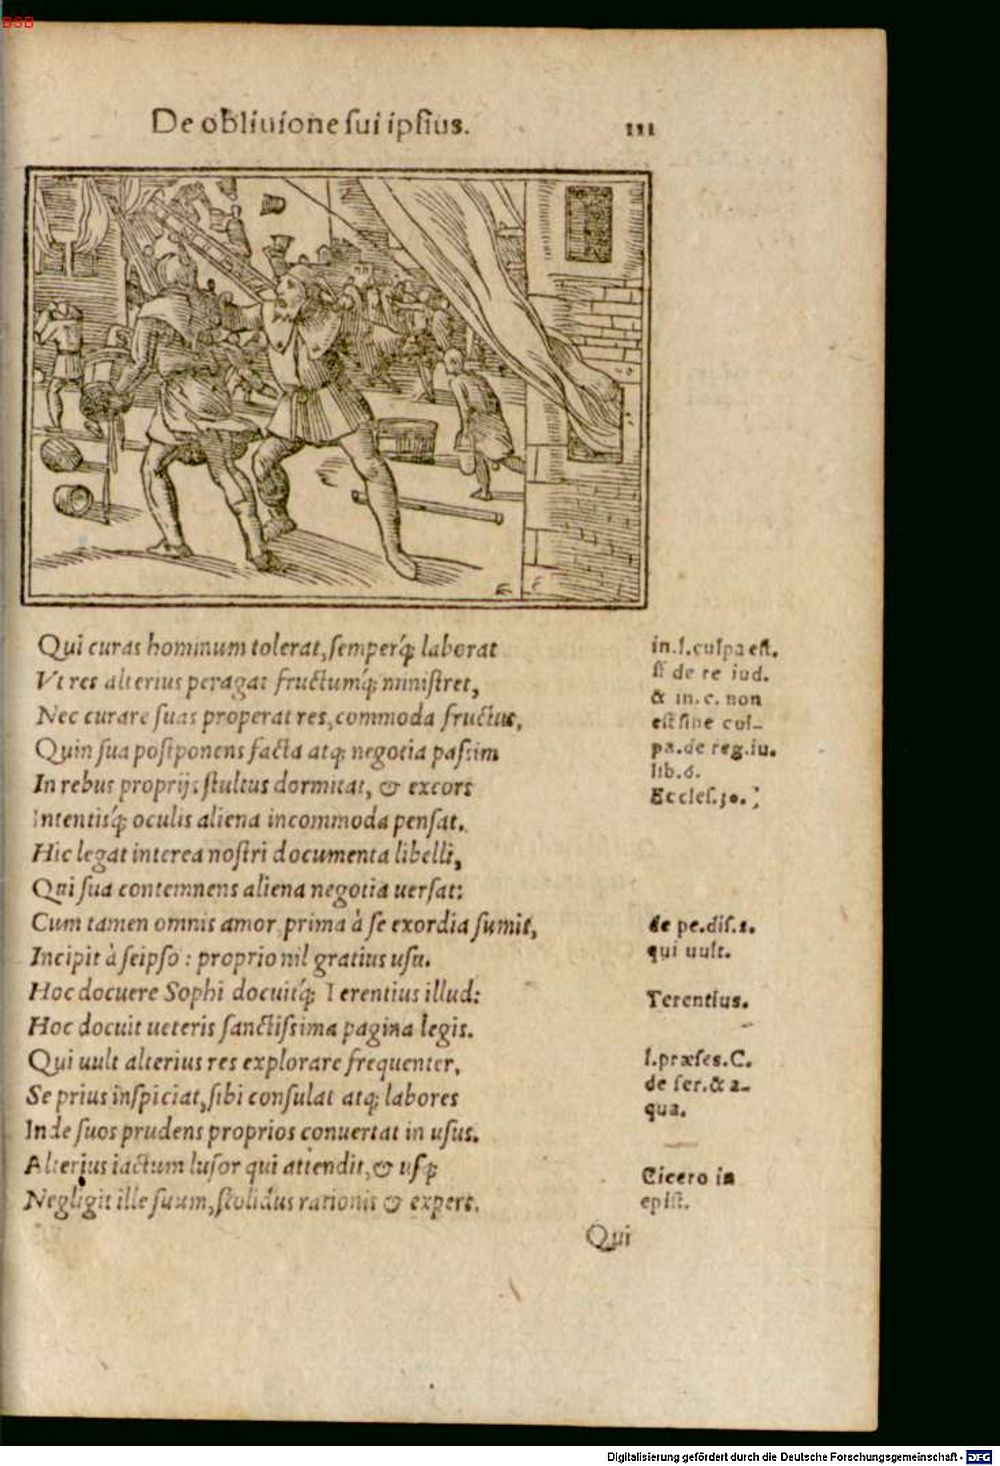 BSB
De obliuione sui ipsius.
111
Qui curas hominum tolerat, semperq́; laborat
Vt res alterius peragat fructumq́; ministret,
Nec curare suas properat res, commoda fructus,
Quin sua postponens facta atq; negotia passim
In rebus proprijs stultus dormitat, & excors
Intentisq́; oculis aliena incommoda pensat.
Hic legat interea nostri documenta libelli,
Qui sua contemnens aliena negotia uersat:
Cum tamen omnis amor prima à se exordia sumit,
Incipit à seipso: proprio nil gratius usu.
Hoc docuere Sophi docuitq́; Terentius illud:
Hoc docuit ueteris sanctissima pagina legis.
Qui uult alterius res explorare frequenter,
Se prius inspiciat, sibi consulat atq; labores
Inde suos prudens proprios conuertat in usus.
Alterius iactum lusor qui attendit, & usq;
Negligit ille suum, stolidus rationis & expers.
in.l.culpa est.
ff de re iud.
& in.c. non
est sine cul-
pa.de reg.iu.
lib.6.
Eccles.30.
de pe.dis.1.
qui uult.
Terentius.
l.præses.C.
de ser.& a-
qua.
Cicero in
epist.
Qui
Digitalisierung gefördert durch die Deutsche Forschungsgemeinschaft - DFG